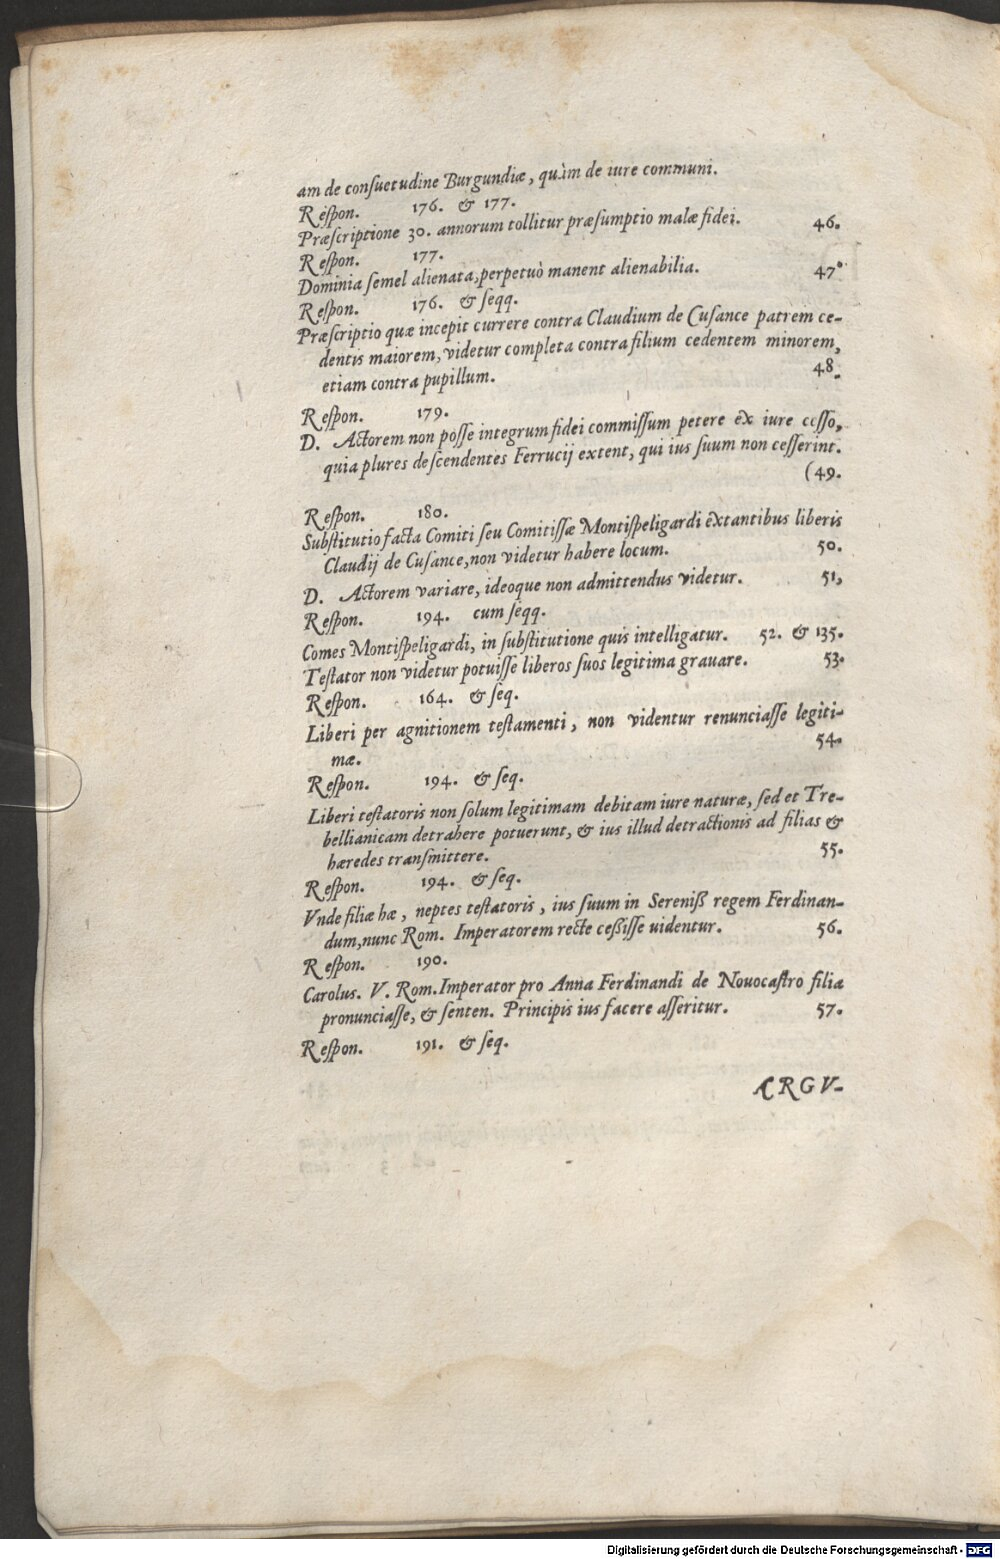 am de conſuetudine Burgundiæ, quàm de iure communi.
Reſpon. 176. & 177.
Præſcriptione 30. annorum tollitur præſumptio malæ fidei. 46.
Reſpon. 177.
Dominia ſemel alienata, perpetuò manent alienabilia. 47.
Reſpon. 176. & ſeqq.
Præſcriptio quæ incepit currere contra Claudium de Cuſance patrem ce-
dentis maiorem, videtur completa contra filium cedentem minorem,
etiam contra pupillum. 48.
Reſpon. 179.
D. Actorem non poſſe integrum fidei commiſſum petere ex iure ceſſo,
quia plures deſcendentes Ferrucij extent, qui ius ſuum non ceſſerint.
(49.
Reſpon. 180.
Subſtitutio facta Comiti ſeu Comitiſſæ Montiſpeligardi extantibus liberis
Claudij de Cuſance, non videtur habere locum. 50.
D. Actorem variare, ideoque non admittendus videtur. 51,
Reſpon. 194. cum ſeqq.
Comes Montiſpeligardi, in ſubſtitutione quis intelligatur. 52. & 135.
Teſtator non videtur potuiſſe liberos ſuos legitima grauare. 53.
Reſpon. 164. & ſeq.
Liberi per agnitionem teſtamenti, non videntur renunciaſſe legiti-
mæ. 54.
Reſpon. 194. & ſeq.
Liberi teſtatoris non ſolum legitimam debitam iure naturæ, ſed et Tre-
bellianicam detrahere potuerunt, & ius illud detractionis ad filias &
hæredes tranſmittere. 55.
Reſpon. 194. & ſeq.
Vnde filiæ hæ, neptes teſtatoris, ius ſuum in Sereniß regem Ferdinan-
dum, nunc Rom. Imperatorem recte ceßiſſe uidentur. 56.
Reſpon. 190.
Carolus. V. Rom. Imperator pro Anna Ferdinandi de Nouocaſtro filia
pronunciaſſe, & ſenten. Principis ius facere aſſeritur. 57.
Reſpon. 191. & ſeq.
ARGV-
Digitalisierung gefördert durch die Deutsche Forschungsgemeinschaft - DFG